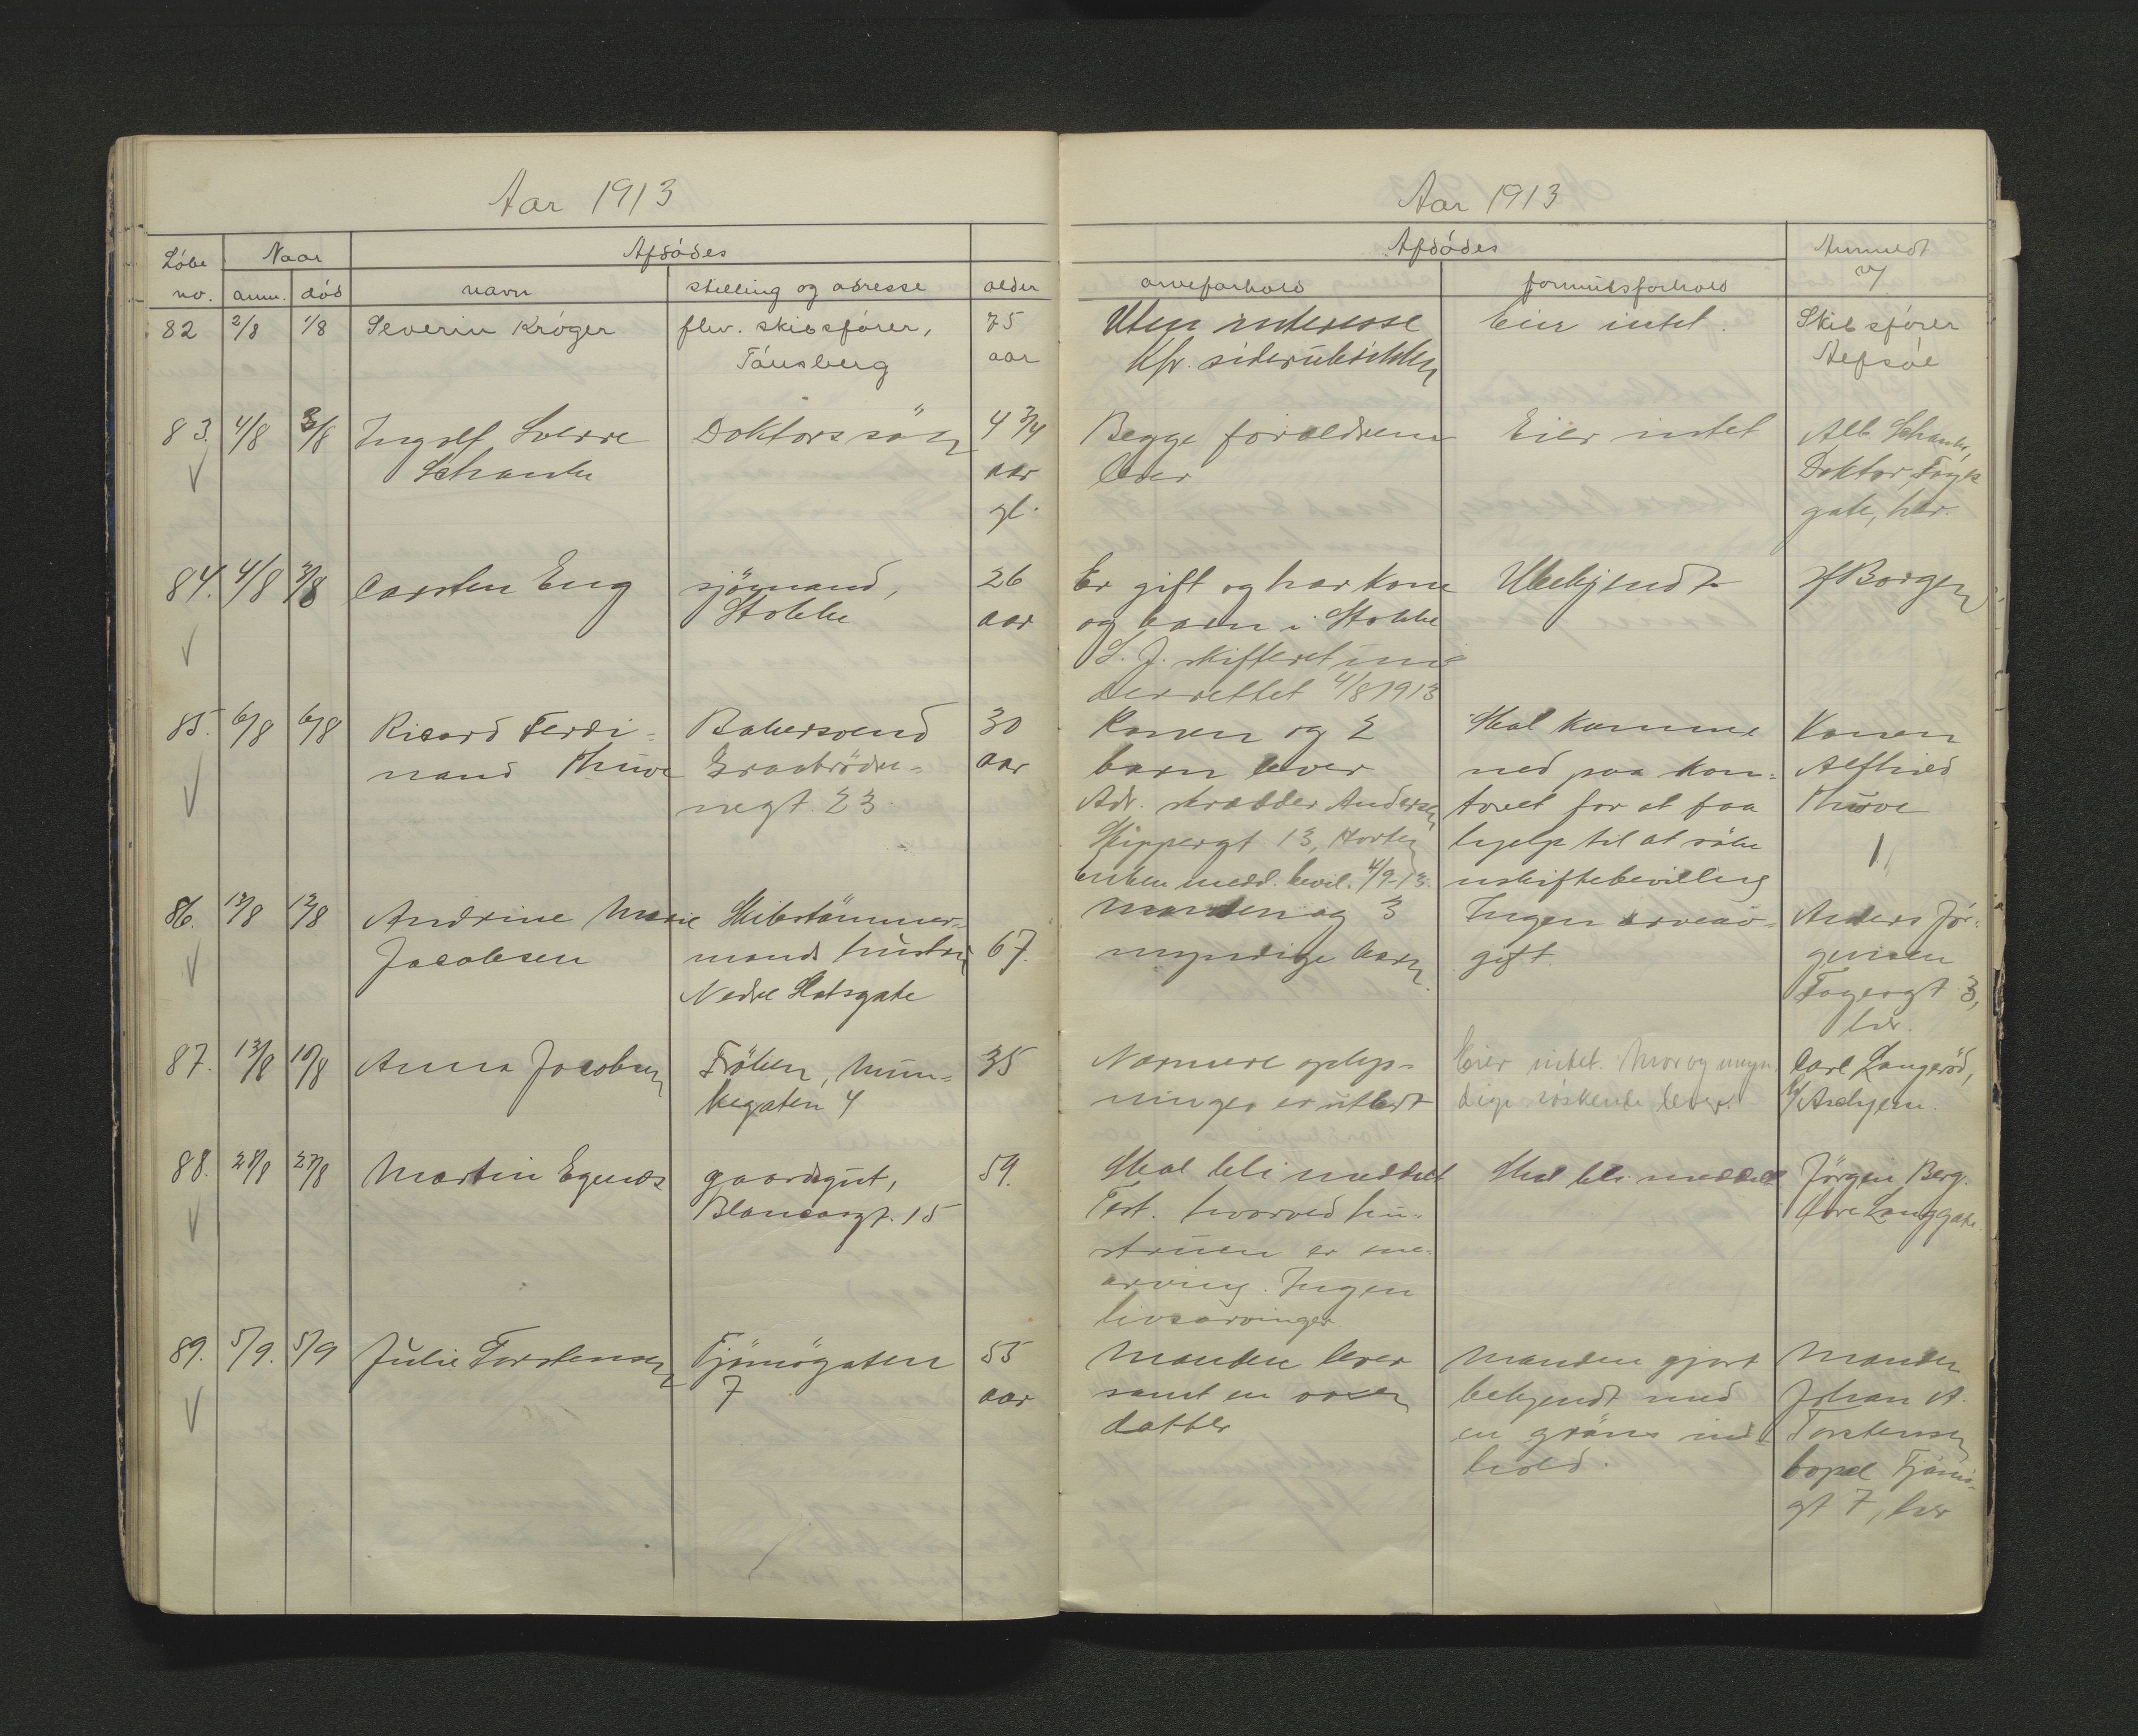 Aar 1913
Løbe
no.
Naar
anm. død
Afdødes
navn
stilling og adresse
alder
82 2/8 1/8 Severin Krøger
flv. skibsfører,
Tønsberg
75
aar
83. 4/8 3/8 Ingolf Sverre
Schanke
Doktorssøn
4 3/4
aar
gl.
84. 4/8 3/8 Carsten Eng
sjømand,
Stokke
26
aar
85. 6/8 6/8 Ricard Ferdi-
nand Thurve
Bakersvend
Graabrødre-
negt. 23
30
aar
86. 13/8 12/8 Andrine Marie
Jacobsen
Skibstømmer-
mands hustru
Nedre Slotsgate
67.
87. 13/8 10/8 Anna Jacobsen
Frøken, Mun-
kegaten 4
35
88. 28/8 27/8 Martin Egenes
gaardsgut,
15
59.
89. 5/9. 5/9 Julie Torstensen
Tjømøgaten
7
55
aar
Aar 1913
Afdødes
arveforhold
formuesforhold
Anmeldt
af
Uten interesse
Kfr. siderubrikken
Eier intet.
Skibsfører
Begge forældrene
lever
Eier intet
Alb. Schanke,
Doktor,
gate, her.
Er gift og har kone
og barn i Stokke
S. J. skifteret un-
derrettet 4/8 1913
Ubekjendt
Borgen
Konen og 2
barn lever
Adr. skrædder Andersen
Skippergt 13, Horten
enken medd. bevil. 4/9-13.
Skal komme
ned paa kon-
toret for at faa
hjelp til at søke
uskiftebevilling
Konen
Alfhild
Thurve
Manden og 3
myndige barn
Ingen arveav-
gift.
Anders Jør-
gensen
3,
her.
Nærmere oplys-
ninger er utbedt
Eier intet. Mor og myn-
dige søskende lever.
Carl Langerød,
Skal bli meddelt
Test. hvorved hu-
struen er ene-
arving. Ingen
livsarvinger.
Skal bli meddelt
Jørgen Berg.
Øvre Langgate.
Manden lever
samt en voxen
datter
Manden gjort
bekjendt med
en grøns ind-
hold.
Manden
Johan A.
Torstensen
bopæl Tjømø-
gt 7, her